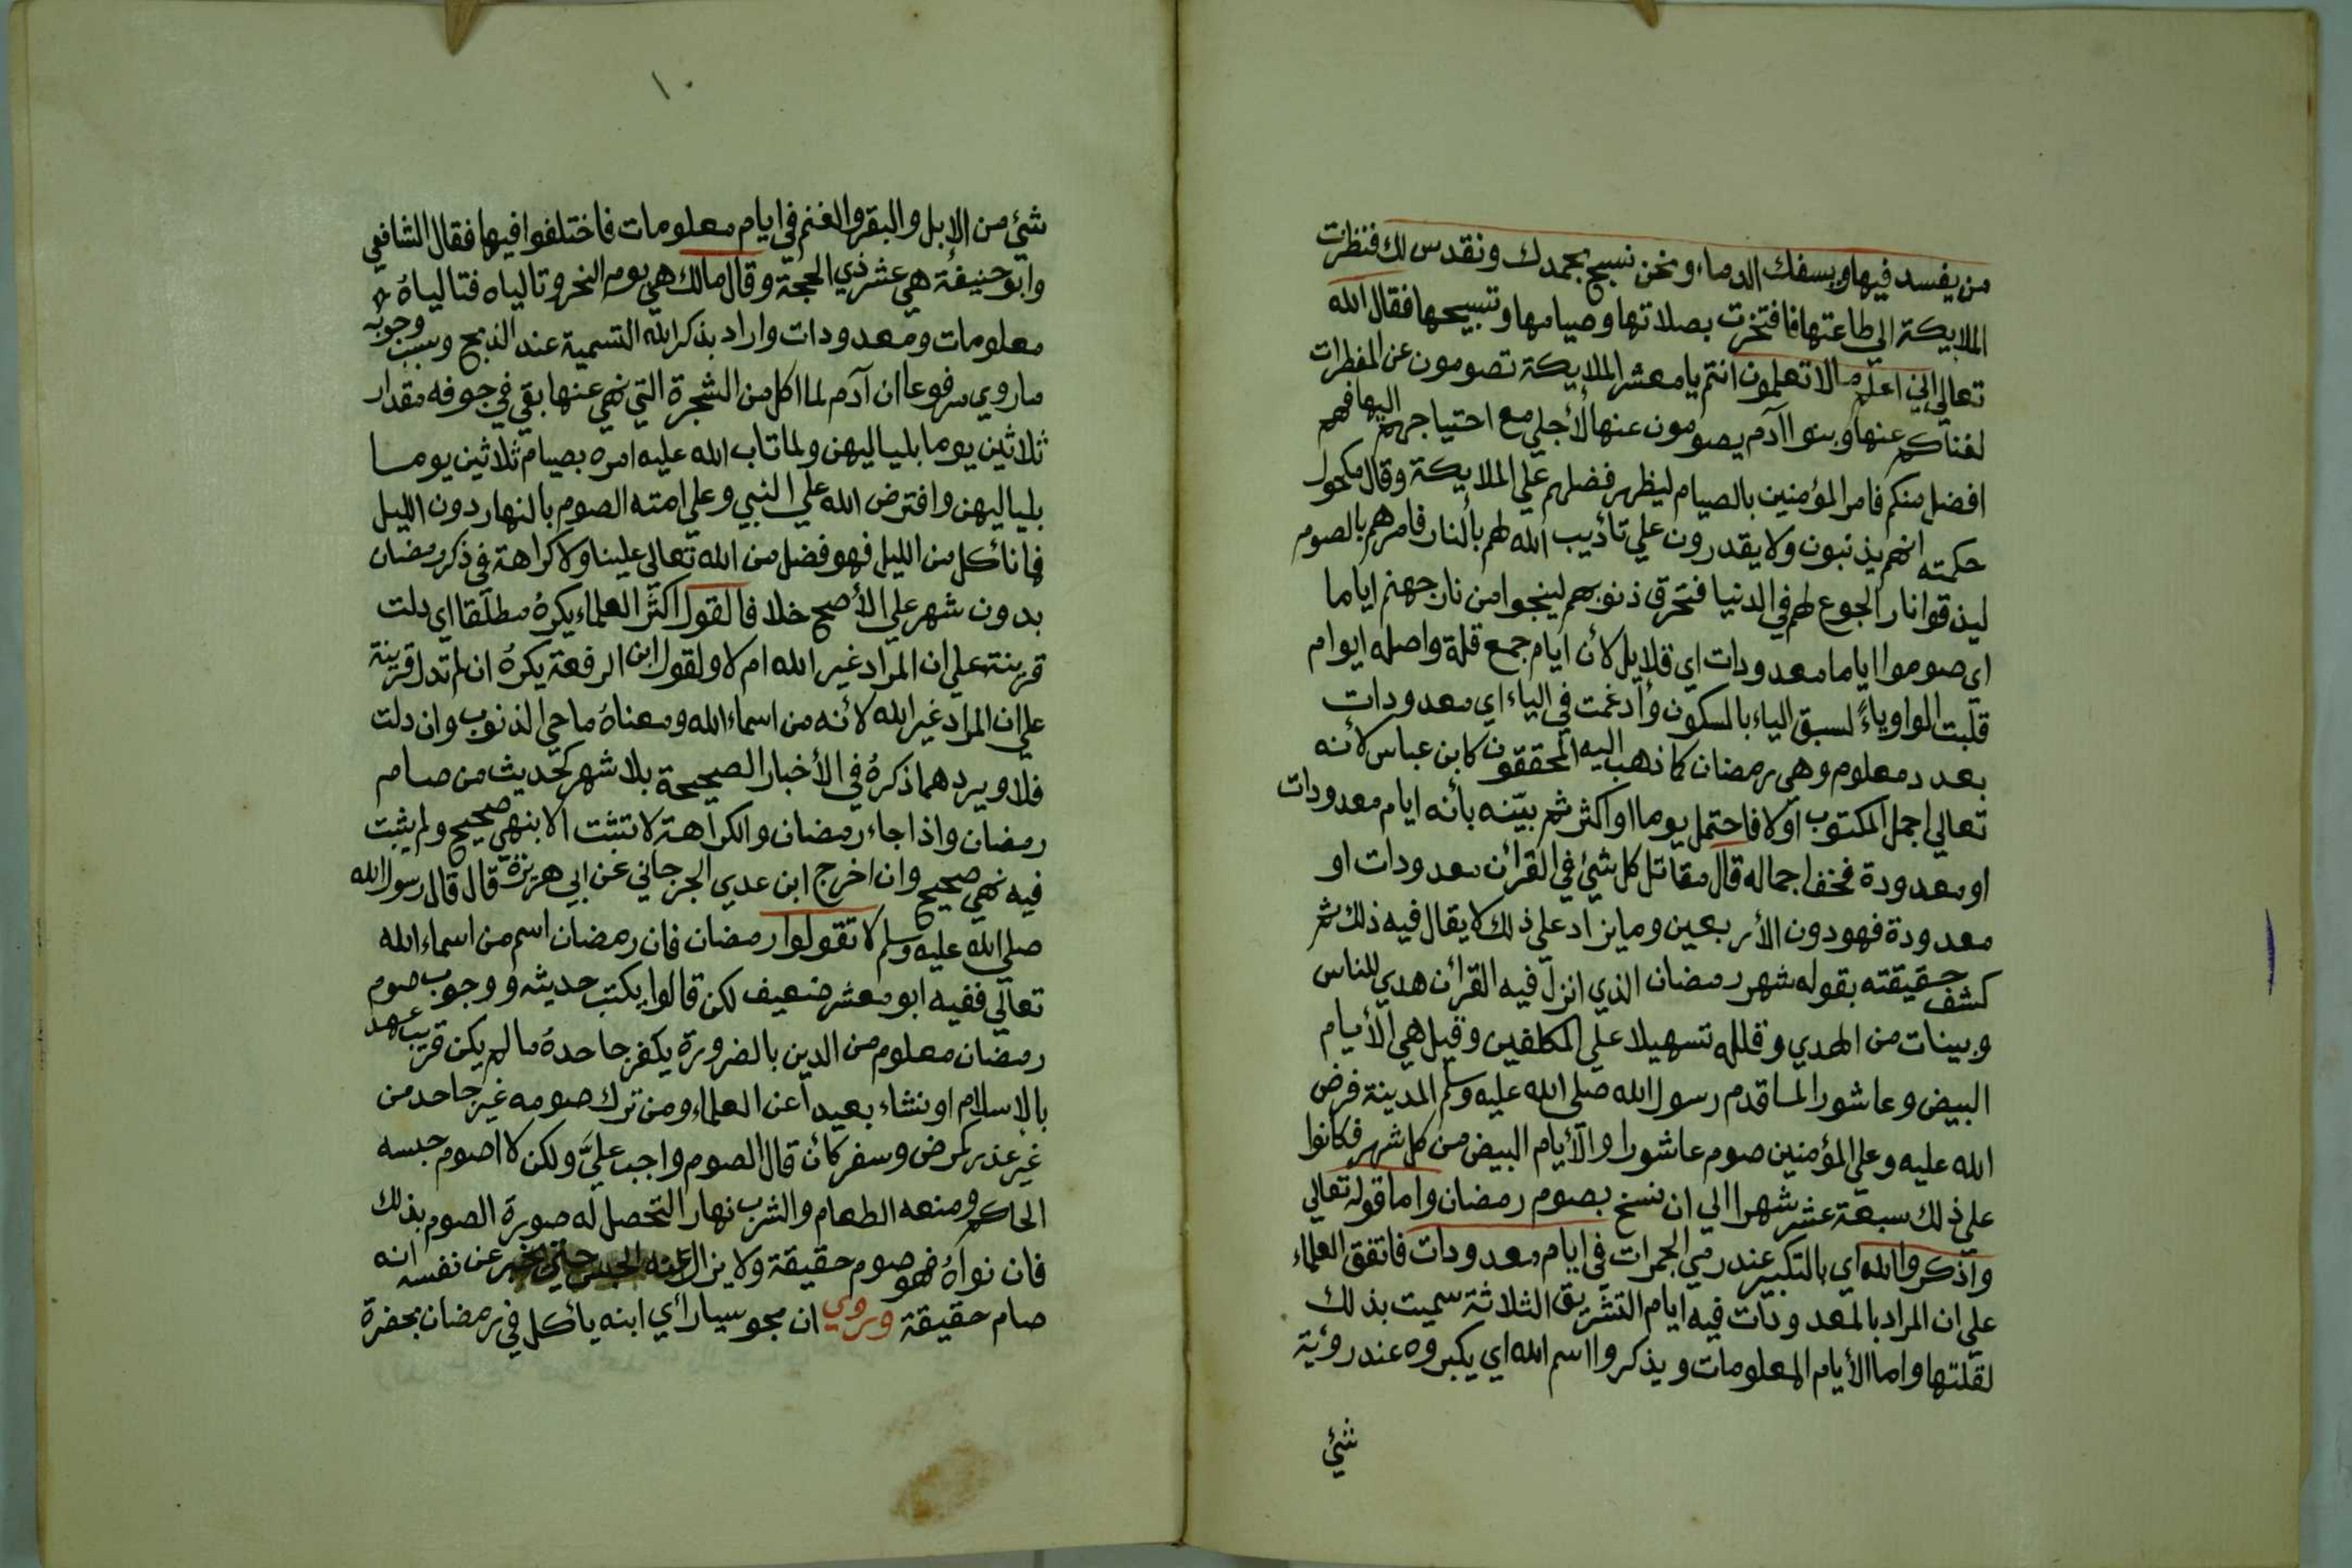 من يفسد فيها ويسفك الدماء ونحن نسبح بحمدك ونقدس لك فنظرت
الملايكة الي طاعتها فافتخرت بصلاتها وصيامها وتسبيحها فقال الله
تعالي اني اعلم مالا تعلمون انتم يا معشر الملايكة تصومون عن المفطرات
لغناكم عنها وبنوا آدم يصومون عنها لأجلي مع احتياجهم اليها فهم
افضل منكم فامر المؤمنين بالصيام ليظهر فضلهم علي الملايكة وقال مكحول
حكمته انهم يذنبون ولا يقدرون علي تأديب الله لهم بالنار فامرهم بالصوم
ليذقوا نار الجوع لهم في الدنيا فتحرق ذنوبهم لينجوا من نار جهنم اياما
اي صوموا اياما معدودات اي قلايل لأن ايام جمع قلة واصله ايوام
قلبت الواو ياءً لسبق الياء بالسكون وأدغمت في الياء اي معدودات
بعدد معلوم وهي رمضان كما ذهب اليه المحققون كابن عباس لأنه
تعالي اجمل المكتوب اولا فاحتمل يوما او اكثر ثم بيّنه بأنه ايام معدودات
او معدودة فخف اجماله قال مقاتل كل شيئ في القرأن معدودات او
معدودة فهو دون الأربعين وما يزاد علي ذلك لا يقال فيه ذلك ثم
كشف حقيقته بقوله شهر رمضان الذي انزل فيه القرأن هدي للناس
وبينات من الهدي وقلله تسهيلا علي المكلفين وقيل هي الأيام
البيض وعاشورا لما قدم رسول الله صلي الله عليه وسلم المدينة فرض
الله عليه وعلي المؤمنين صوم عاشورا والأيام البيض من كل شهر فكانوا
علي ذلك سبعة عشر شهرا الي ان نسخ بصوم رمضان واما قوله تعالي
واذكروا الله اي بالتكبير عند رمي الجمرات في ايام معدودات فاتفق العلماء
علي ان المراد بالمعدودات فيه ايام التشريق الثلاثة سميت بذلك
لقلتها واما الأيام المعلومات ويذكروا اسم الله اي يكبروه عند رؤية
شيئ
١٠
شيئ من الإبل والبقر والغنم في ايام معلومات فاختلفوا فيها فقال الشافعي
وابو حنيفة هي عشر ذي الحجة وقال مالك هي يوم النحر وتالياه فتالياهُ
معلومات ومعدودات واراد بذكر الله التسمية عند الذبح وسبب وجوبه
ما روي مرفوعا ان آدم لما اكل من الشجرة التي نهي عنها بقي في جوفه مقدار
ثلاثين يوما بلياليهن ولما تاب الله عليه امره بصيام ثلاثين يوما
بلياليهن وافترض الله علي النبي وعلي امته الصوم بالنهار دون الليل
فما نأكل من الليل فهو فضل من الله تعالي علينا ولا كراهة في ذكر رمضان
بدون شهر علي الأصح خلافا لقول اكثر العلماء يكرهُ مطلقا اي دلت
قرينة علي ان المراد غير الله ام لا ولقول ابن الرفعة يكرهُ ان لم تدل قرينة
علي ان المراد غير الله لأنه من اسماء الله ومعناهُ ماحي الذنوب وان دلت
فلا ويردهما ذكرهُ في الأخبار الصحيحة بلا شهر كحديث من صام
رمضان واذا جاء رمضان والكراهة لا تثبت الا بنهي صحيح ولم يثبت
فيه نهي صحيح وان اخرج ابن عدي الجرجاني عن ابي هريرة قال قال رسول الله
صلي الله عليه وسلم لا تقولوا رمضان فان رمضان اسم من اسماء الله
تعالي ففيه ابو معشر ضعيف لكن قالوا يكتب حديثه ووجوب صوم
رمضان معلوم من الدين بالضرورة يكفر جاحدهُ ما لم يكن قريب عهد
بالإسلام او نشاء بعيداً عن العلماء ومن ترك صومه غير جاحد من
غير عذر كمرض وسفر كأن قال الصوم واجب عليَّ ولكن لا اصوم حبسه
الحاكم ومنعه الطعام والشرب نهارا لتحصل له صورة الصوم بذلك
فان نواهُ فهو صوم حقيقة ولا يزال عنه الحبس حتي يخبر عن نفسه انه
صام حقيقة وروي ان مجوسيا رأي ابنه يأكل في رمضان بحضرة